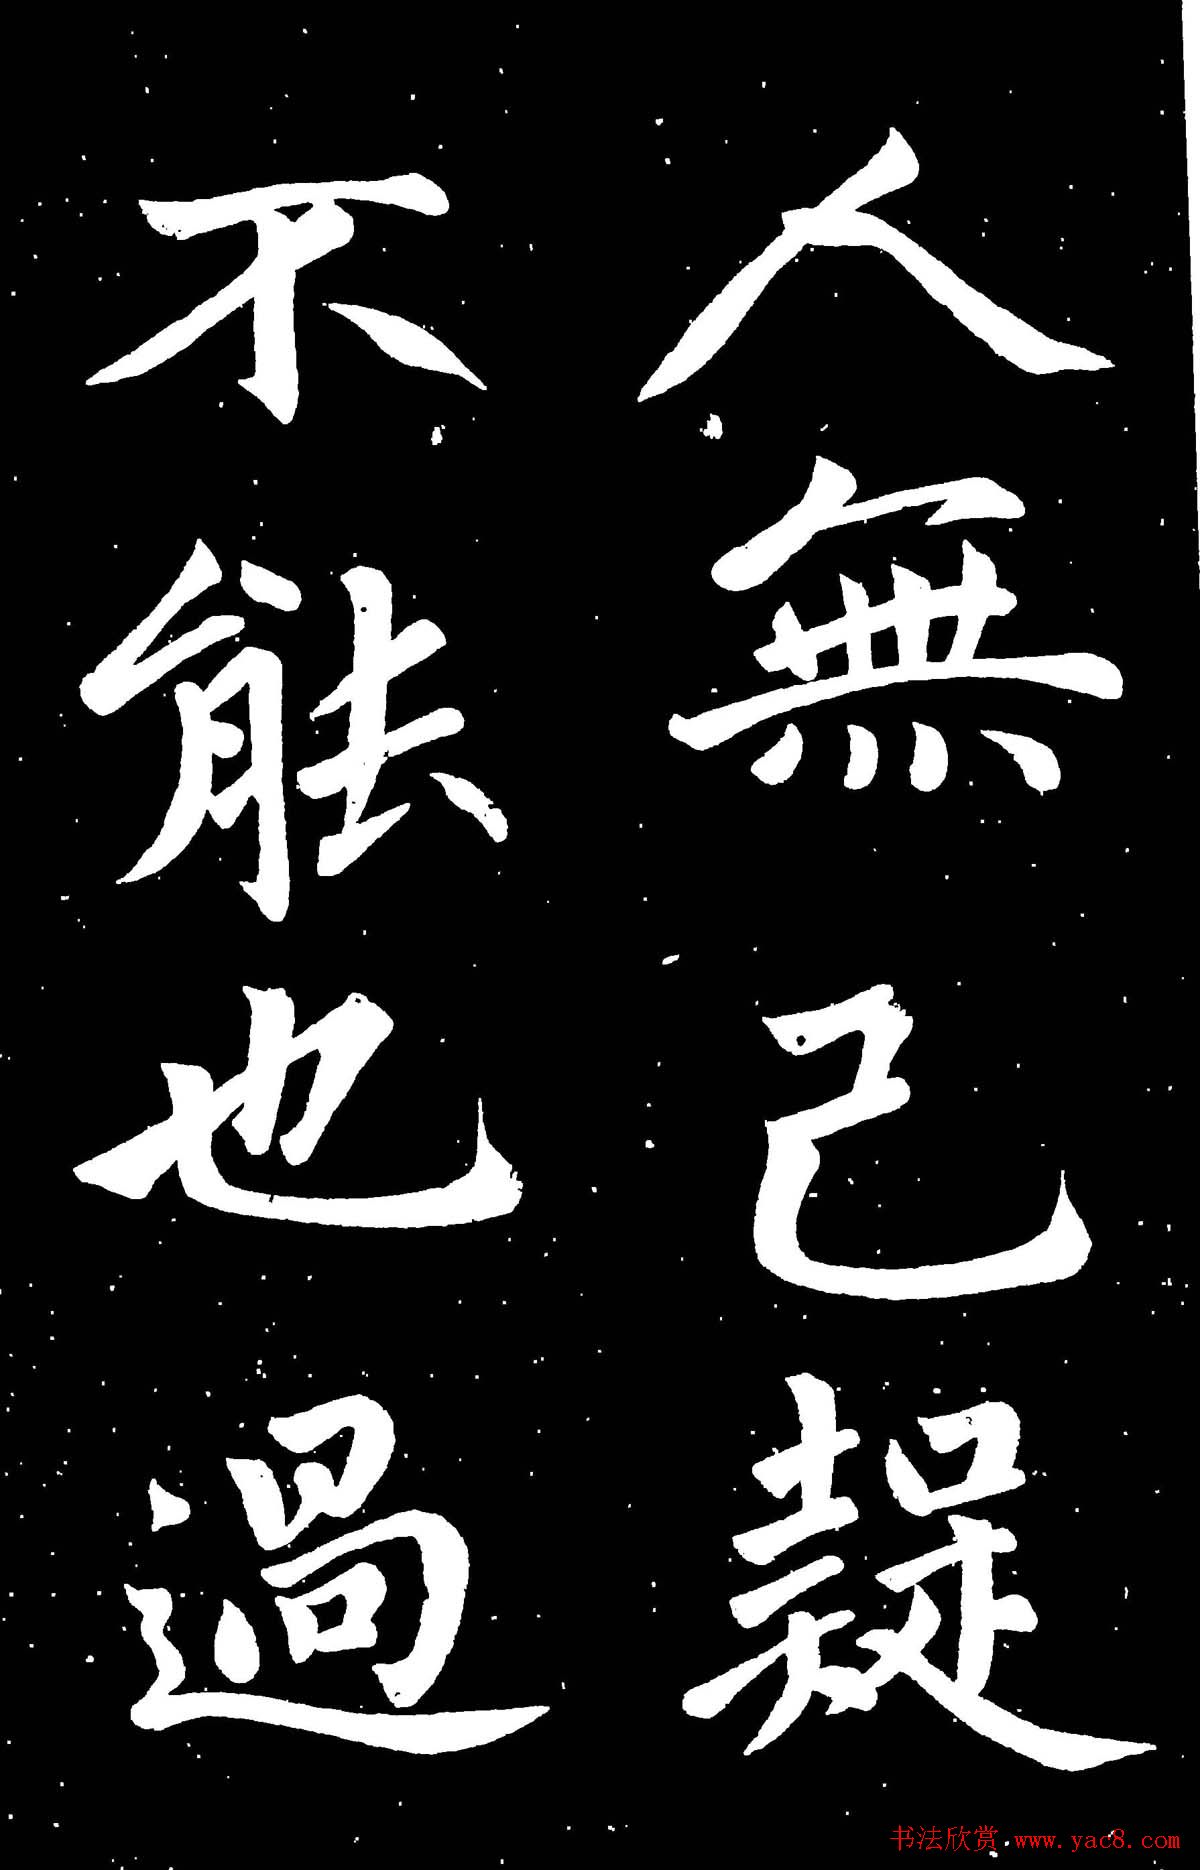 人無己疑
不能也過
书法欣赏 www.yac8.com